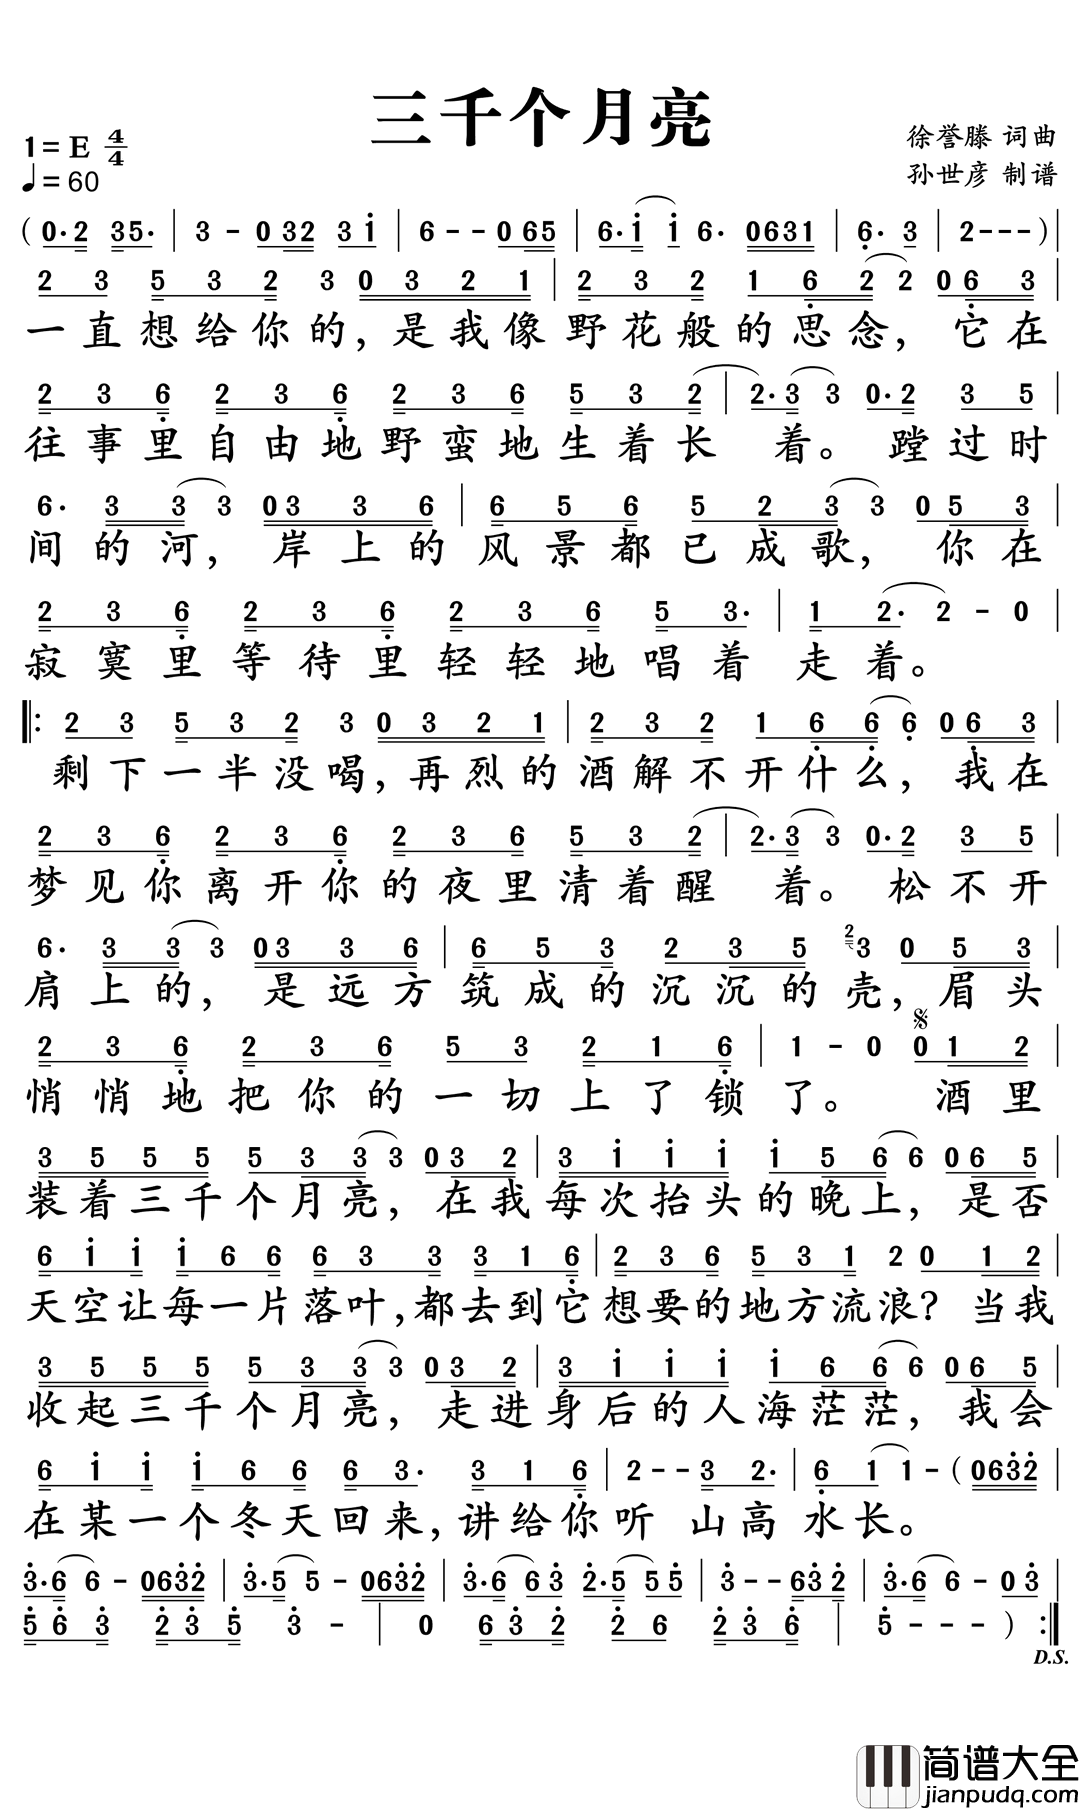 三千个月亮
1=E 4/4
徐誉滕 词曲
♩=60
孙世彦 制谱
( 0·2 35· | 3 - 0 32 3 i | 6 - - 0 65 | 6·i i 6· 0631 | 6· 3 | 2 - - - ) |
2 3 5 3 2 3 0 3 2 1 | 2 3 2 1 6 2 2 0 6 3 |
一直想给你的,是我像野花般的思念, 它在
2 3 6 2 3 6 2 3 6 5 3 2 | 2·3 3 0·2 3 5 |
往事里自由地野蛮地生着长 着。 蹚过时
6· 3 3 3 0 3 3 6 | 6 5 6 5 2 3 3 0 5 3 |
间的河, 岸上的风景都已成歌, 你在
2 3 6 2 3 6 2 3 6 5 3· | 1 2· 2 - 0 |
寂寞里等待里轻轻地唱着 走着。
|: 2 3 5 3 2 3 0 3 2 1 | 2 3 2 1 6 6 6 0 6 3 |
剩下一半没喝,再烈的酒解不开什么, 我在
2 3 6 2 3 6 2 3 6 5 3 2 | 2·3 3 0·2 3 5 |
梦见你离开你的夜里清着醒 着。 松不开
6· 3 3 3 0 3 3 6 | 6 5 3 2 3 5 2 3 0 5 3 |
肩上的, 是远方筑成的沉沉的壳,眉头
2 3 6 2 3 6 5 3 2 1 6 | 1 - 0 0 1 2 |
悄悄地把你的一切上了锁了。 酒里
3 5 5 5 5 3 3 3 0 3 2 | 3 i i i i 5 6 6 0 6 5 |
装着三千个月亮, 在我每次抬头的晚上, 是否
6 i i i 6 6 6 3 3 3 1 6 | 2 3 6 5 3 1 2 0 1 2 |
天空让每一片落叶,都去到它想要的地方流浪? 当我
3 5 5 5 5 3 3 3 0 3 2 | 3 i i i i 6 6 6 0 6 5 |
收起三千个月亮, 走进身后的人海茫茫, 我会
6 i i i 6 6 6 3· 3 1 6 | 2 - - 3 2· | 6 1 1 - ( 0632 |
在某一个冬天回来,讲给你听 山高 水长。
3·6 6 - 0632 | 3·5 5 - 0632 | 3·6 6 3 2·5 5 5 | 3 - - 63 2 | 3·6 6 - 0 3 |
5 6 3 2 3 5 3 - | 0 6 3 2 2 6 2 3 6 | 5 - - ) :|
D.S.
简谱大全
jianpudq.com